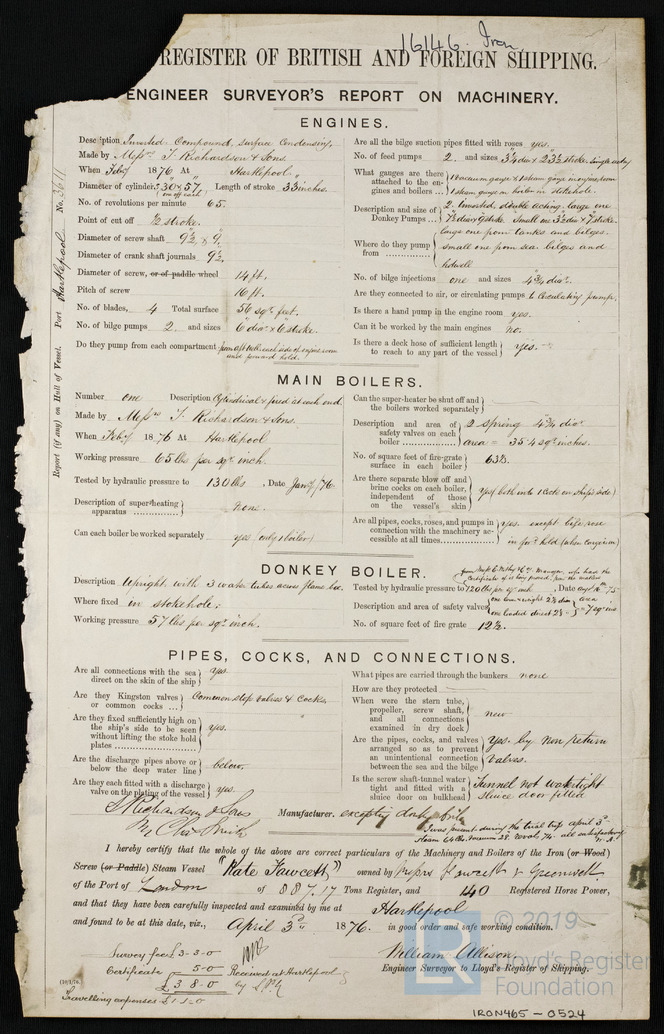 16146 Iron
REGISTER OF BRITISH AND FOREIGN SHIPPING.
ENGINEER SURVEYOR'S REPORT ON MACHINERY.
Report (if any) on Hull of Vessel. Port Hartlepool No. 3611
ENGINES.
Description Inverted. Compound, surface condensing.
Made by Messrs T. Richardson & Sons.
When Feby 1876 At Hartlepool
Diameter of cylinders 30" & 57" (one off each) Length of stroke 33 inches.
No. of revolutions per minute 65.
Point of cut off 1/2 stroke.
Diameter of screw shaft
Diameter of crank shaft journals 9½"
Diameter of screw, or of paddle wheel 14 ft.
Pitch of screw 16 ft.
No. of blades, 4 Total surface 56 sqr feet.
No. of bilge pumps 2 and sizes 6" diar x 6" stroke.
Do they pump from each compartment
and forward hold.
Are all the bilge suction pipes fitted with roses yes.
No. of feed pumps 2. and sizes 3¼ diar x 23½ stroke. single acting
What gauges are there attached to the engines and boilers ... 1 vacuum gauge & 1 steam gauge in engine room
1 steam gauge on boiler in stokehole.
Description and size of Donkey Pumps ... 2. Inverted, double acting. large one
small one 3½ diar & 7 stroke
Where do they pump from large one from tanks and bilges.
small one from sea. bilges and
hotwell
No. of bilge injections one and sizes 4¾ diar.
Are they connected to air, or circulating pumps to Circulating pump.
Is there a hand pump in the engine room yes.
Can it be worked by the main engines no.
Is there a deck hose of sufficient length to reach to any part of the vessel yes.
MAIN BOILERS.
Number one Description Cylindrical & fired at each end.
Made by Messrs T. Richardson & Sons.
When Feby 1876 At Hartlepool
Working pressure 65 lbs per sqr inch.
Tested by hydraulic pressure to 130 lbs , Date Jany /76
Description of super-heating apparatus none.
Can each boiler be worked separately yes (only 1 boiler)
Can the super-heater be shut off and the boilers worked separately
Description and area of safety valves on each boiler 2 spring 4¾ diar
area = 35.4 sqr inches.
No. of square feet of fire-grate surface in each boiler 63½.
Are there separate blow off and brine cocks on each boiler, independent of those on the vessel's skin yes (both into 1 cock on ship's side)
Are all pipes, cocks, roses, and pumps in connection with the machinery accessible at all times yes. except bilge rose
in for'd hold (when cargo in)
DONKEY BOILER.
Description Upright, with 3 water tubes across flame box.
Where fixed in stokehole.
Working pressure 57 lbs per sqr inch.
Tested by hydraulic pressure to 120 lbs per sqr inch
Description and area of safety valves
No. of square feet of fire grate 12½.
PIPES, COCKS, AND CONNECTIONS.
Are all connections with the sea direct on the skin of the ship yes.
Are they Kingston valves or common cocks ... Common stop valves & cocks.
Are they fixed sufficiently high on the ship's side to be seen without lifting the stoke hold plates yes.
Are the discharge pipes above or below the deep water line below.
Are they each fitted with a discharge valve on the plating of the vessel yes.
What pipes are carried through the bunkers none
How are they protected
When were the stern tube, propeller, screw shaft, and all connections examined in dry dock new
Are the pipes, cocks, and valves arranged so as to prevent an unintentional connection between the sea and the bilge Yes. by non return
valves.
Is the screw shaft-tunnel water tight and fitted with a sluice door on bulkhead Tunnel not watertight
sluice door fitted
T Richardson & Sons Manufacturer. excepting donkey boiler
I was present during the trial trip april 3rd
I hereby certify that the whole of the above are correct particulars of the Machinery and Boilers of the Iron (or Wood)
Screw (or Paddle) Steam Vessel "Kate Fawcett" owned by Messrs Fawcett & Greenwell
of the Port of London of 887.17 Tons Register, and 140 Registered Horse Power,
and that they have been carefully inspected and examined by me at Hartlepool
and found to be at this date, viz., April 3rd 1876. in good order and safe working condition.
William Allison.
Engineer Surveyor to Lloyd's Register of Shipping.
Survey fee £3-3-0
Certificate 5-0
£3-8-0
Received at Hartlepool
Travelling expenses £1-1-0
© 2019
LR
Lloyd's Register
Foundation
IRON465-0524